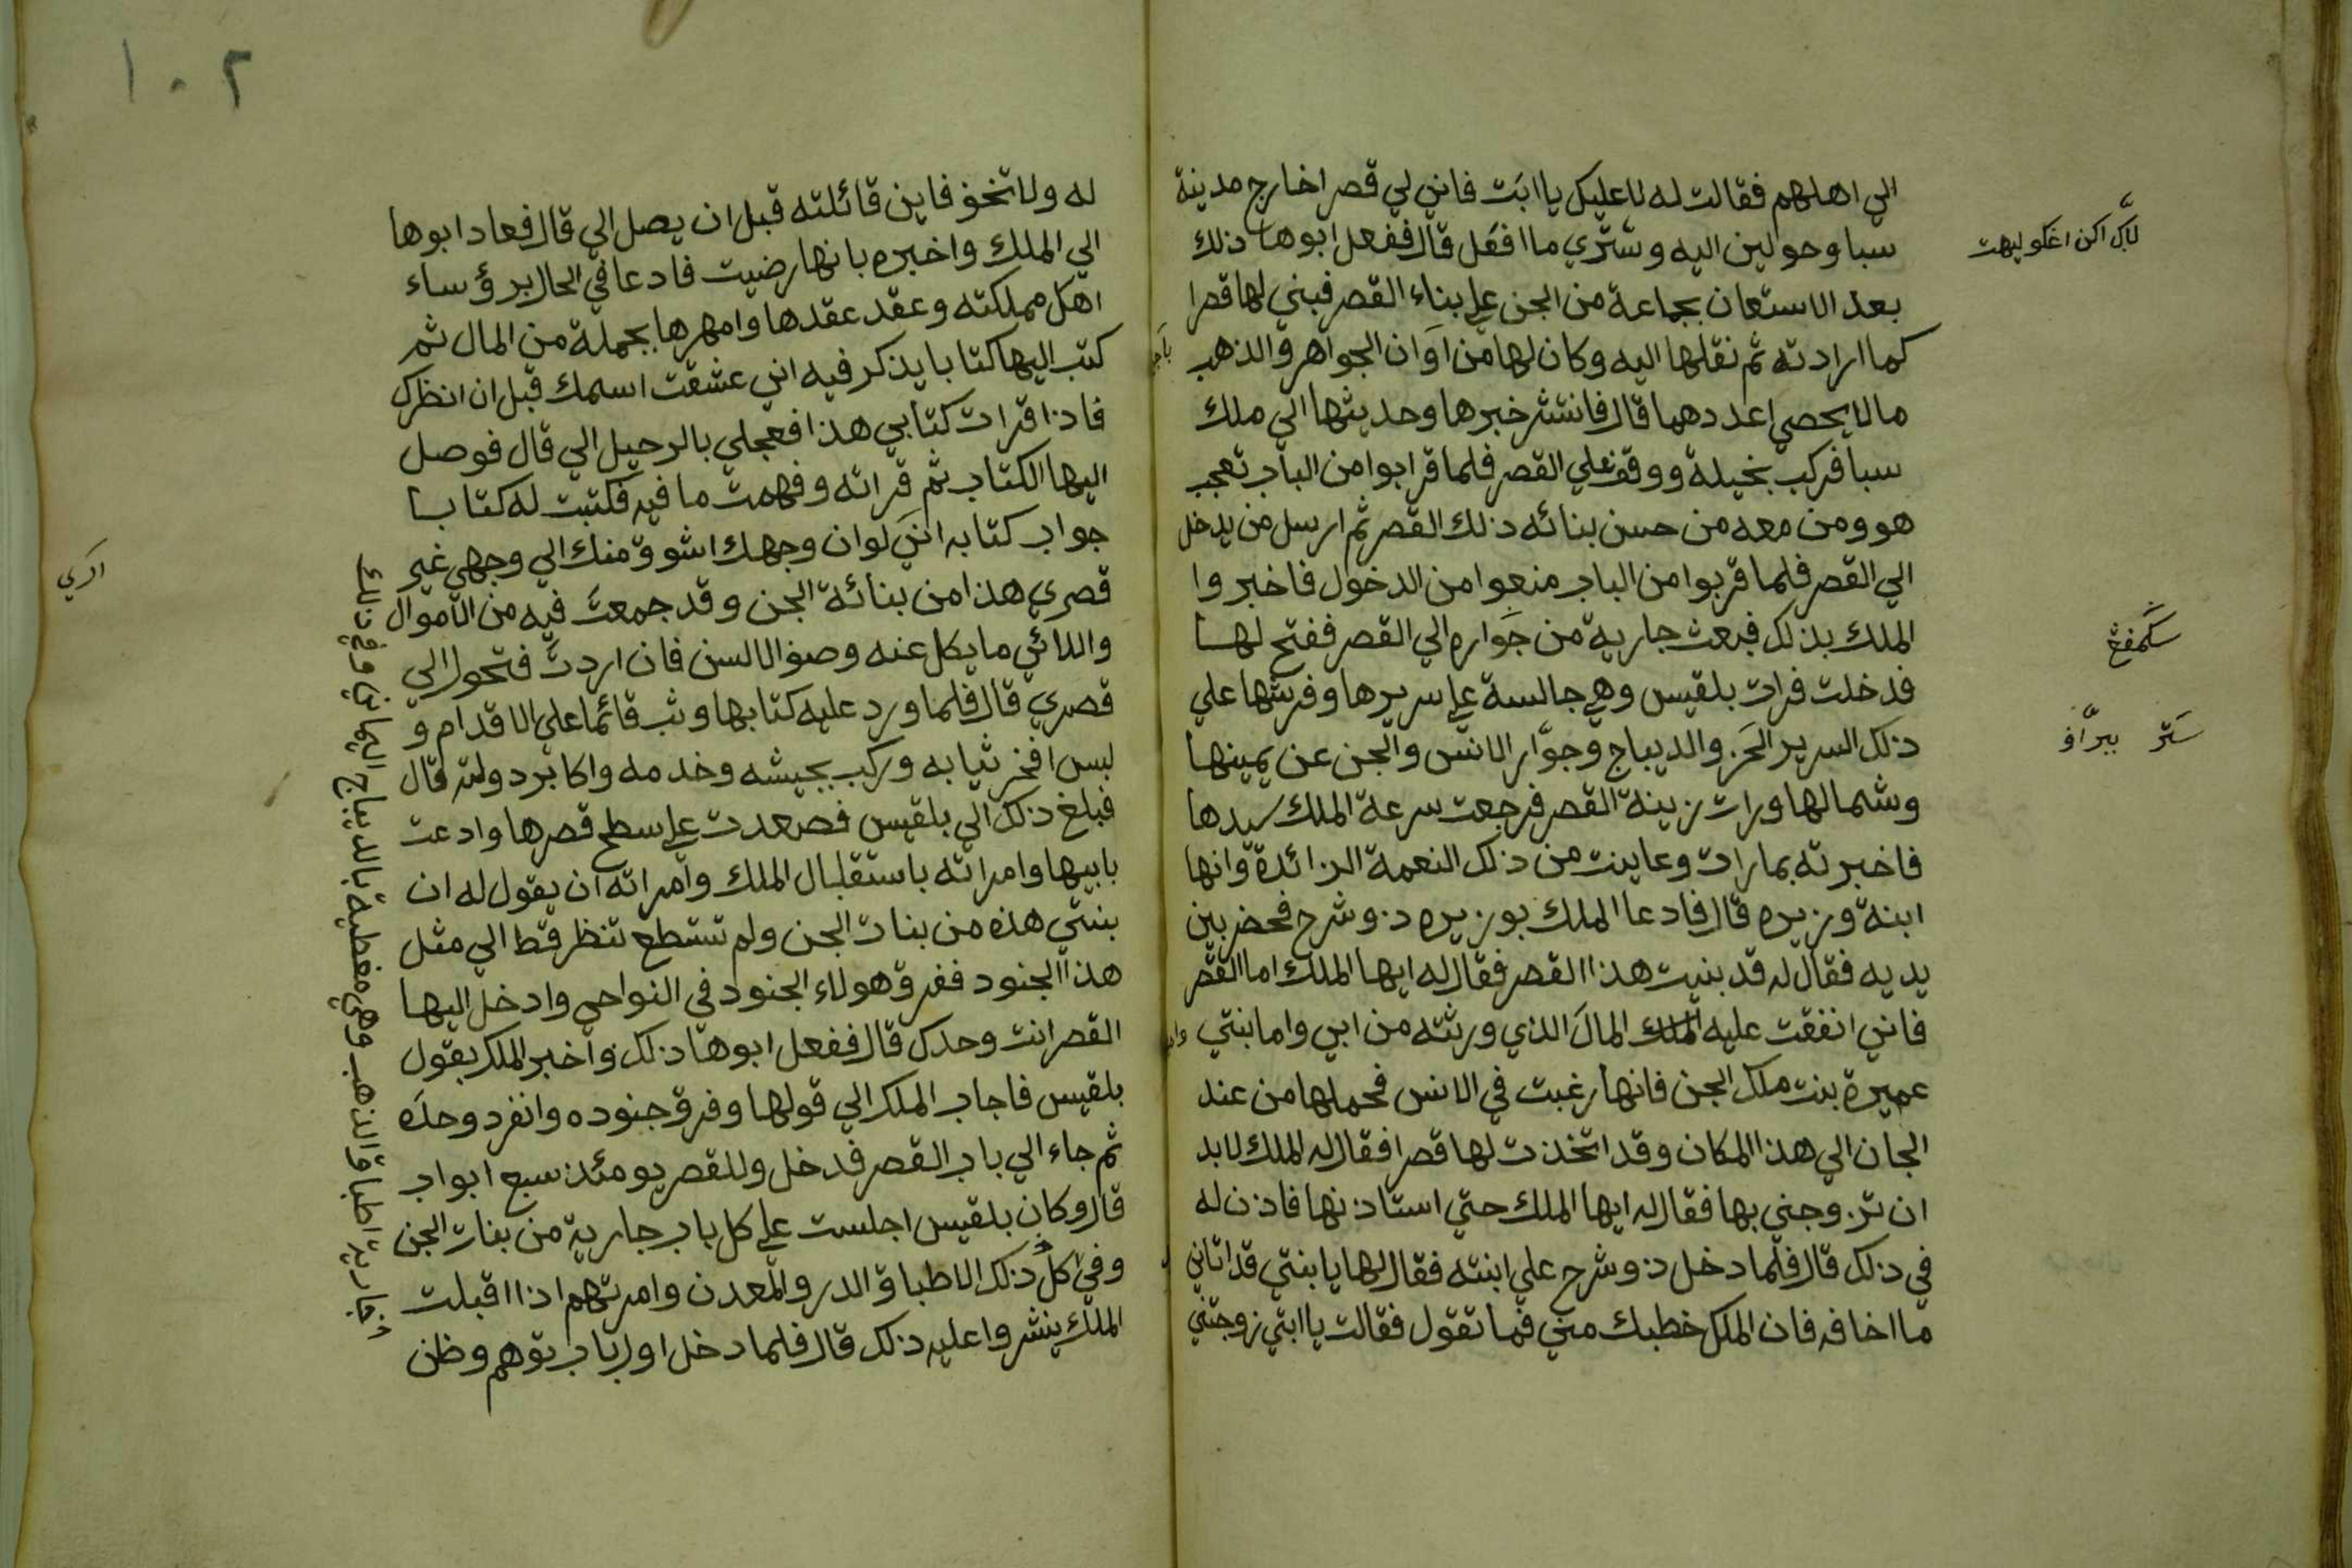 الي اهلهم فقالت له لا عليك يا ابت فانني لي قصرا خارج مدينة
سبا وحولين اليه وستري ما افعل قال ففعل ابوها ذلك
بعد الاستعان بجماعة من الجن علي بناء القصر فبني لها قصرا
كما ارادته ثم نقلها اليه وكان لها من اوان الجواهر والذهب
ما لا يحصي عددهما قال فانتشر خبرها وحديثها الي ملك
سبا فركب بخيلة ووقف علي القصر فلما قرابوا من الباب تعجب
هو ومن معه من حسن بنائه ذلك القصر ثم ارسل من يدخل
الي القصر فلما قربوا من الباب منعوا من الدخول فاخبروا
الملك بذلك فبعث جارية من جواره الي القصر ففتح لها
فدخلت فرات بلقيس وهي جالسة علي سريرها وفرشها علي
ذلك السرير الخز والديباج وجوار الانس والجن عن يمينها
وشمالها ورات زينة القصر فرجعت سرعة الملك سيدها
فاخبرته بما رات وعاينت من ذلك النعمة الزائدة وانها
ابنة وزيره قال فادعا الملك بوزيره ذوشرح فحضر بين
يديه فقال له قد بنيت هذا القصر فقال له ايها الملك اما القصر
فاني انفقت عليه المال الذي ورثته من ابي واما بنتي
عميرة بنت ملك الجن فانها رغبت في الانس فحملها من عند
الجان الي هذا المكان وقد اتخذت لها قصرا فقال له الملك لابد
ان تزوجني بها فقال له ايها الملك حتي استاذنها فاذن له
في ذلك قال فلما دخل ذوشرح علي ابنته فقال لها يا بنتي قد اتاني
ما اخافه فان الملك خطبك مني فما تقول فقالت يا ابتي زوجتني
١٠٢
له ولا تخف فاين قائلته قبل ان يصل الي قال فعاد ابوها
الي الملك واخبره بانها رضيت فادعا في الحال برؤساء
اهل مملكته وعقد عقدها وامهرها بجملة من المال ثم
كتب اليها كتابا يذكر فيه اني عشقت اسمك قبل ان انظرك
فاذا قرات كتابي هذا فعجلي بالرحيل الي قال فوصل
اليها الكتاب ثم قراته وفهمت ما فيه فكتبت له كتابا
جواب كتابه انني لوان وجهك اشوق منك الي وجهي غير
قصري هذا من بنائة الجن وقد جمعت فيه من الاموال
واللائي ما يكل عنه وصف الالسن فان اردت فتحول الي
قصري قال فلما ورد عليه كتابها وثب قائما علي الاقدام و
لبس افخر ثيابه وركب بجيشه وخدمه واكابر دولته قال
فبلغ ذلك الي بلقيس فصعدت علي سطح قصرها وادعت
بابيها وامراته باستقلبال الملك وامراته ان يقول له ان
بنتي هذه من بنات الجن ولم تستطع تنظر قط الي مثل
هذا الجنود ففرق هولاء الجنود في النواحي وادخل اليها
القصر انت وحدك قال ففعل ابوها ذلك واخبر الملك بقول
بلقيس فاجاب الملك الي قولها وفرق جنوده وانفرد وحده
ثم جاء الي باب القصر فدخل وللقصر يومئذ سبع ابواب
قال وكان بلقيس اجلست علي كل باب جارية من بنات الجن
وفي كل ذلك الاطباق الدر والمعدن وامرتهم اذا اقبلت
الملك ينشروا عليه ذلك قال فلما دخل اول باب توهم وظن